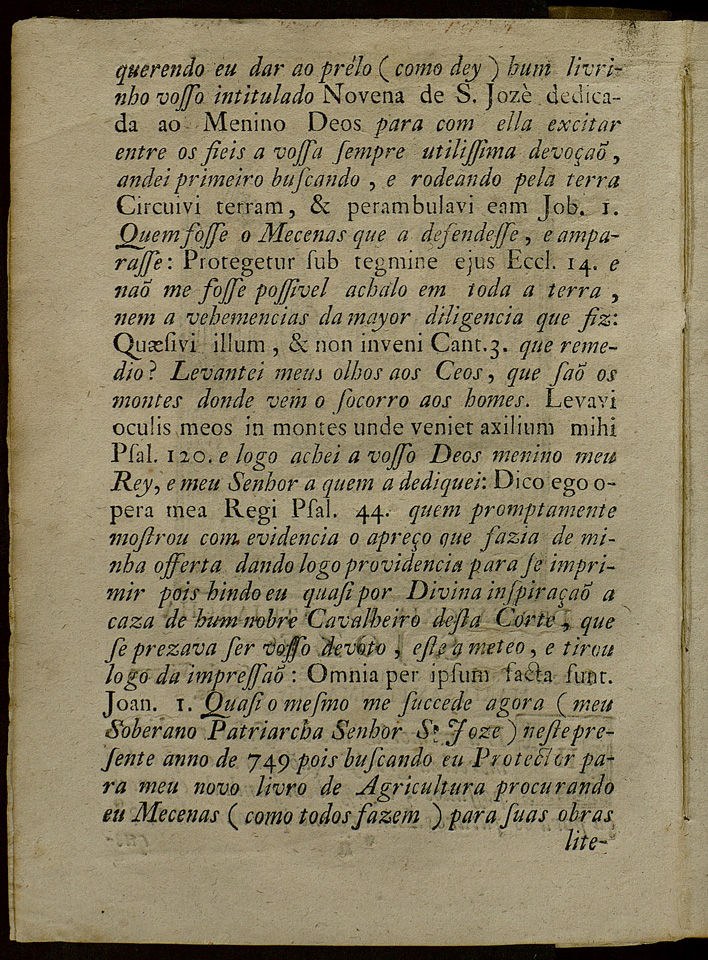 querendo eu dar ao prélo ( como dey ) hum livri-
nho voſſo intitulado Novena de S. Jozè dedica-
da ao Menino Deos para com ella excitar
entre os fieis a voſſa ſempre utiliſſima devoçaõ ,
andei primeiro buſcando , e rodeando pela terra
Circuivi terram, & perambulavi eam Job. 1.
Quem foſſe o Mecenas que a defendeſſe , e ampa-
raſſe: Protegetur ſub tegmine ejus Eccl. 14. e
naõ me foſſe poſſivel achalo em toda a terra ,
nem a vehemencias da mayor diligencia que fiz:
Quæſivi illum , & non inveni Cant.3. que reme-
dio? Levantei meus olhos aos Ceos, que ſaõ os
montes donde vem o ſocorro aos homes. Levavi
oculis meos in montes unde veniet axilium mihi
Pſal. 120. e logo achei a voſſo Deos menino meu
Rey, e meu Senhor a quem a dediquei: Dico ego o-
pera mea Regi Pſal. 44. quem promptamente
moſtrou com evidencia o apreço que fazia de mi-
nha offerta dando logo providencia para ſe impri-
mir pois hindo eu quaſi por Divina inſpiraçaõ a
caza de hum nobre Cavalheiro deſta Corte , que
ſe prezava ſer voſſo devoto , eſte a meteo , e tirou
logo da impreſſaõ : Omnia per ipſum facta ſunt.
Joan. 1. Quaſi o meſmo me ſuccede agora ( meu
Soberano Patriarcha Senhor S. Joze ) neſte pre-
ſente anno de 749 pois buſcando eu Protector pa-
ra meu novo livro de Agricultura procurando
eu Mecenas ( como todos fazem ) para ſuas obras
lite-